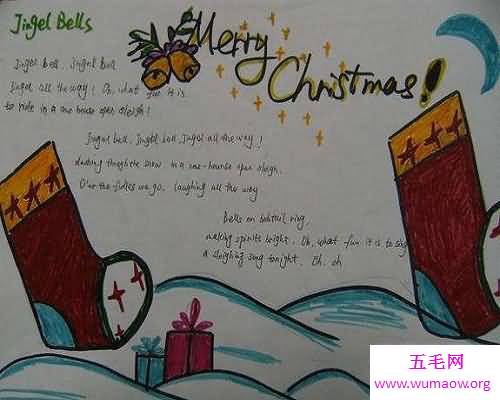 Jingel Bells
Merry
Christmas!
Jingel bell, Jingel bell
Jingel all the way! Oh, what fun it is
to ride in a one house open sleigh!
Jingel bell, Jingel bell, Jingel all the way!
dashing the snow in a one-hourse open sleigh,
O'er the fields we go, laughing all the way
Bells on bobtail ring,
making spirits bright, Oh, what fun it is to sing
a sleighing song tonight. Oh, oh
五毛网
www.wumaow.org